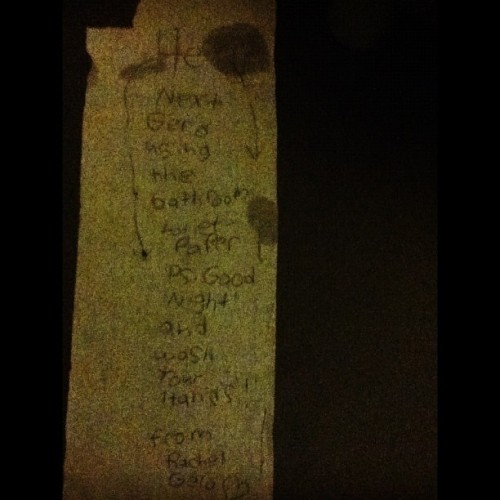 Next
using
the
bathroom
toilet
Paper
PS. Good
Night!
and
wash
Your
Hands!!
From
Rachel